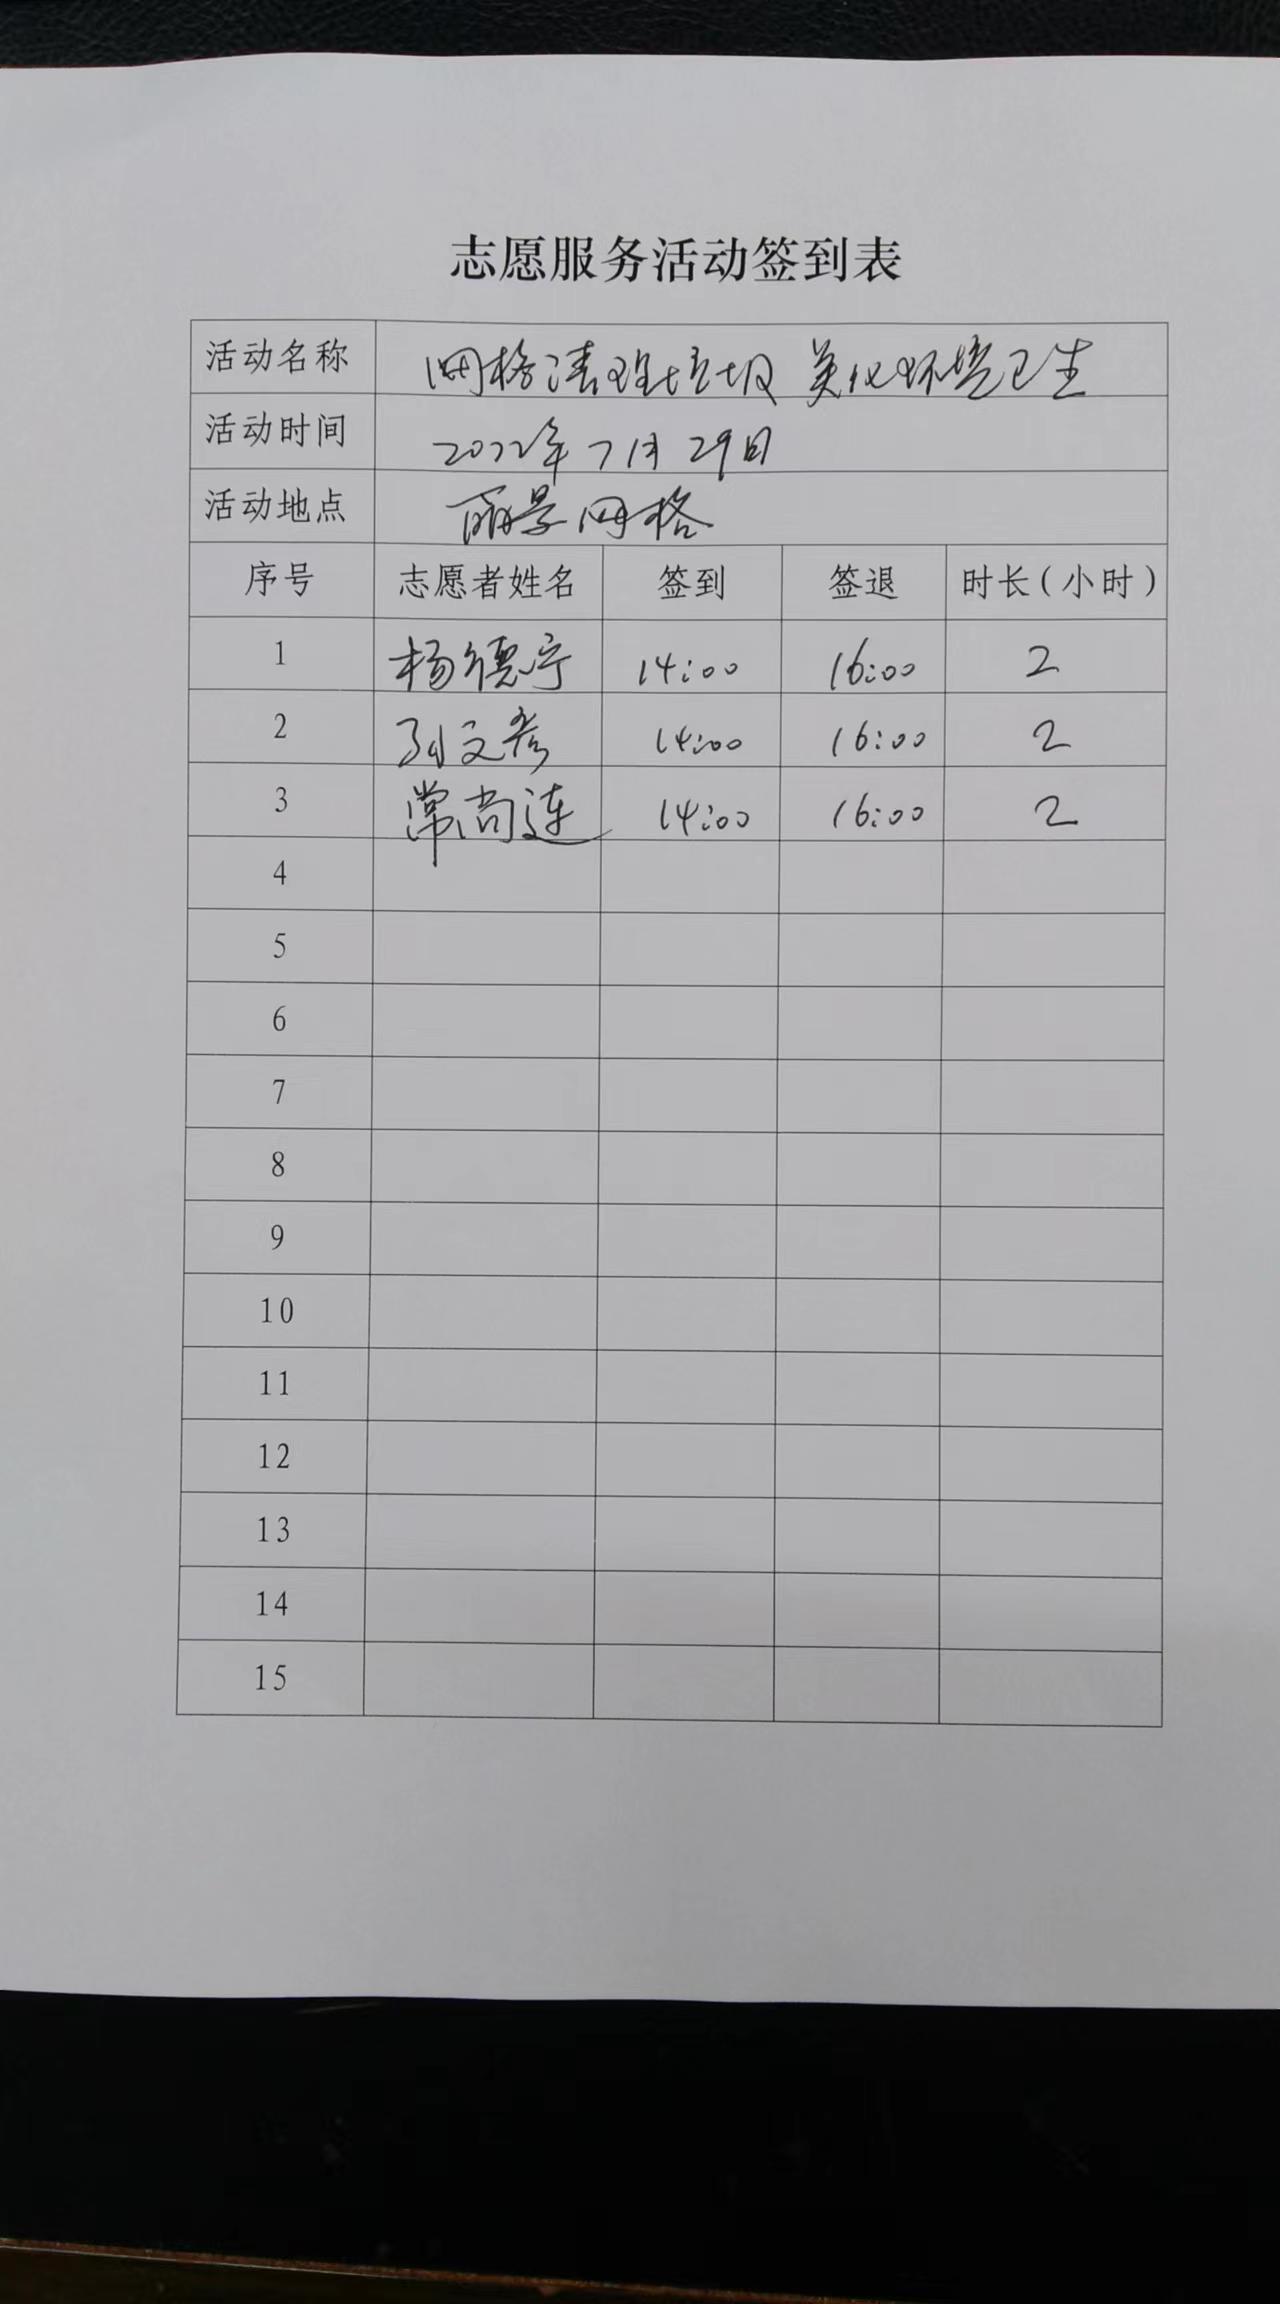 志愿服务活动签到表
活动名称 网格清理垃圾 美化环境卫生
活动时间 2022年7月29日
活动地点 丽景网格
序号 志愿者姓名 签到 签退 时长(小时)
1 杨德宁 14:00 16:00 2
2 孙文彦 14:00 16:00 2
3 常尚连 14:00 16:00 2
4
5
6
7
8
9
10
11
12
13
14
15